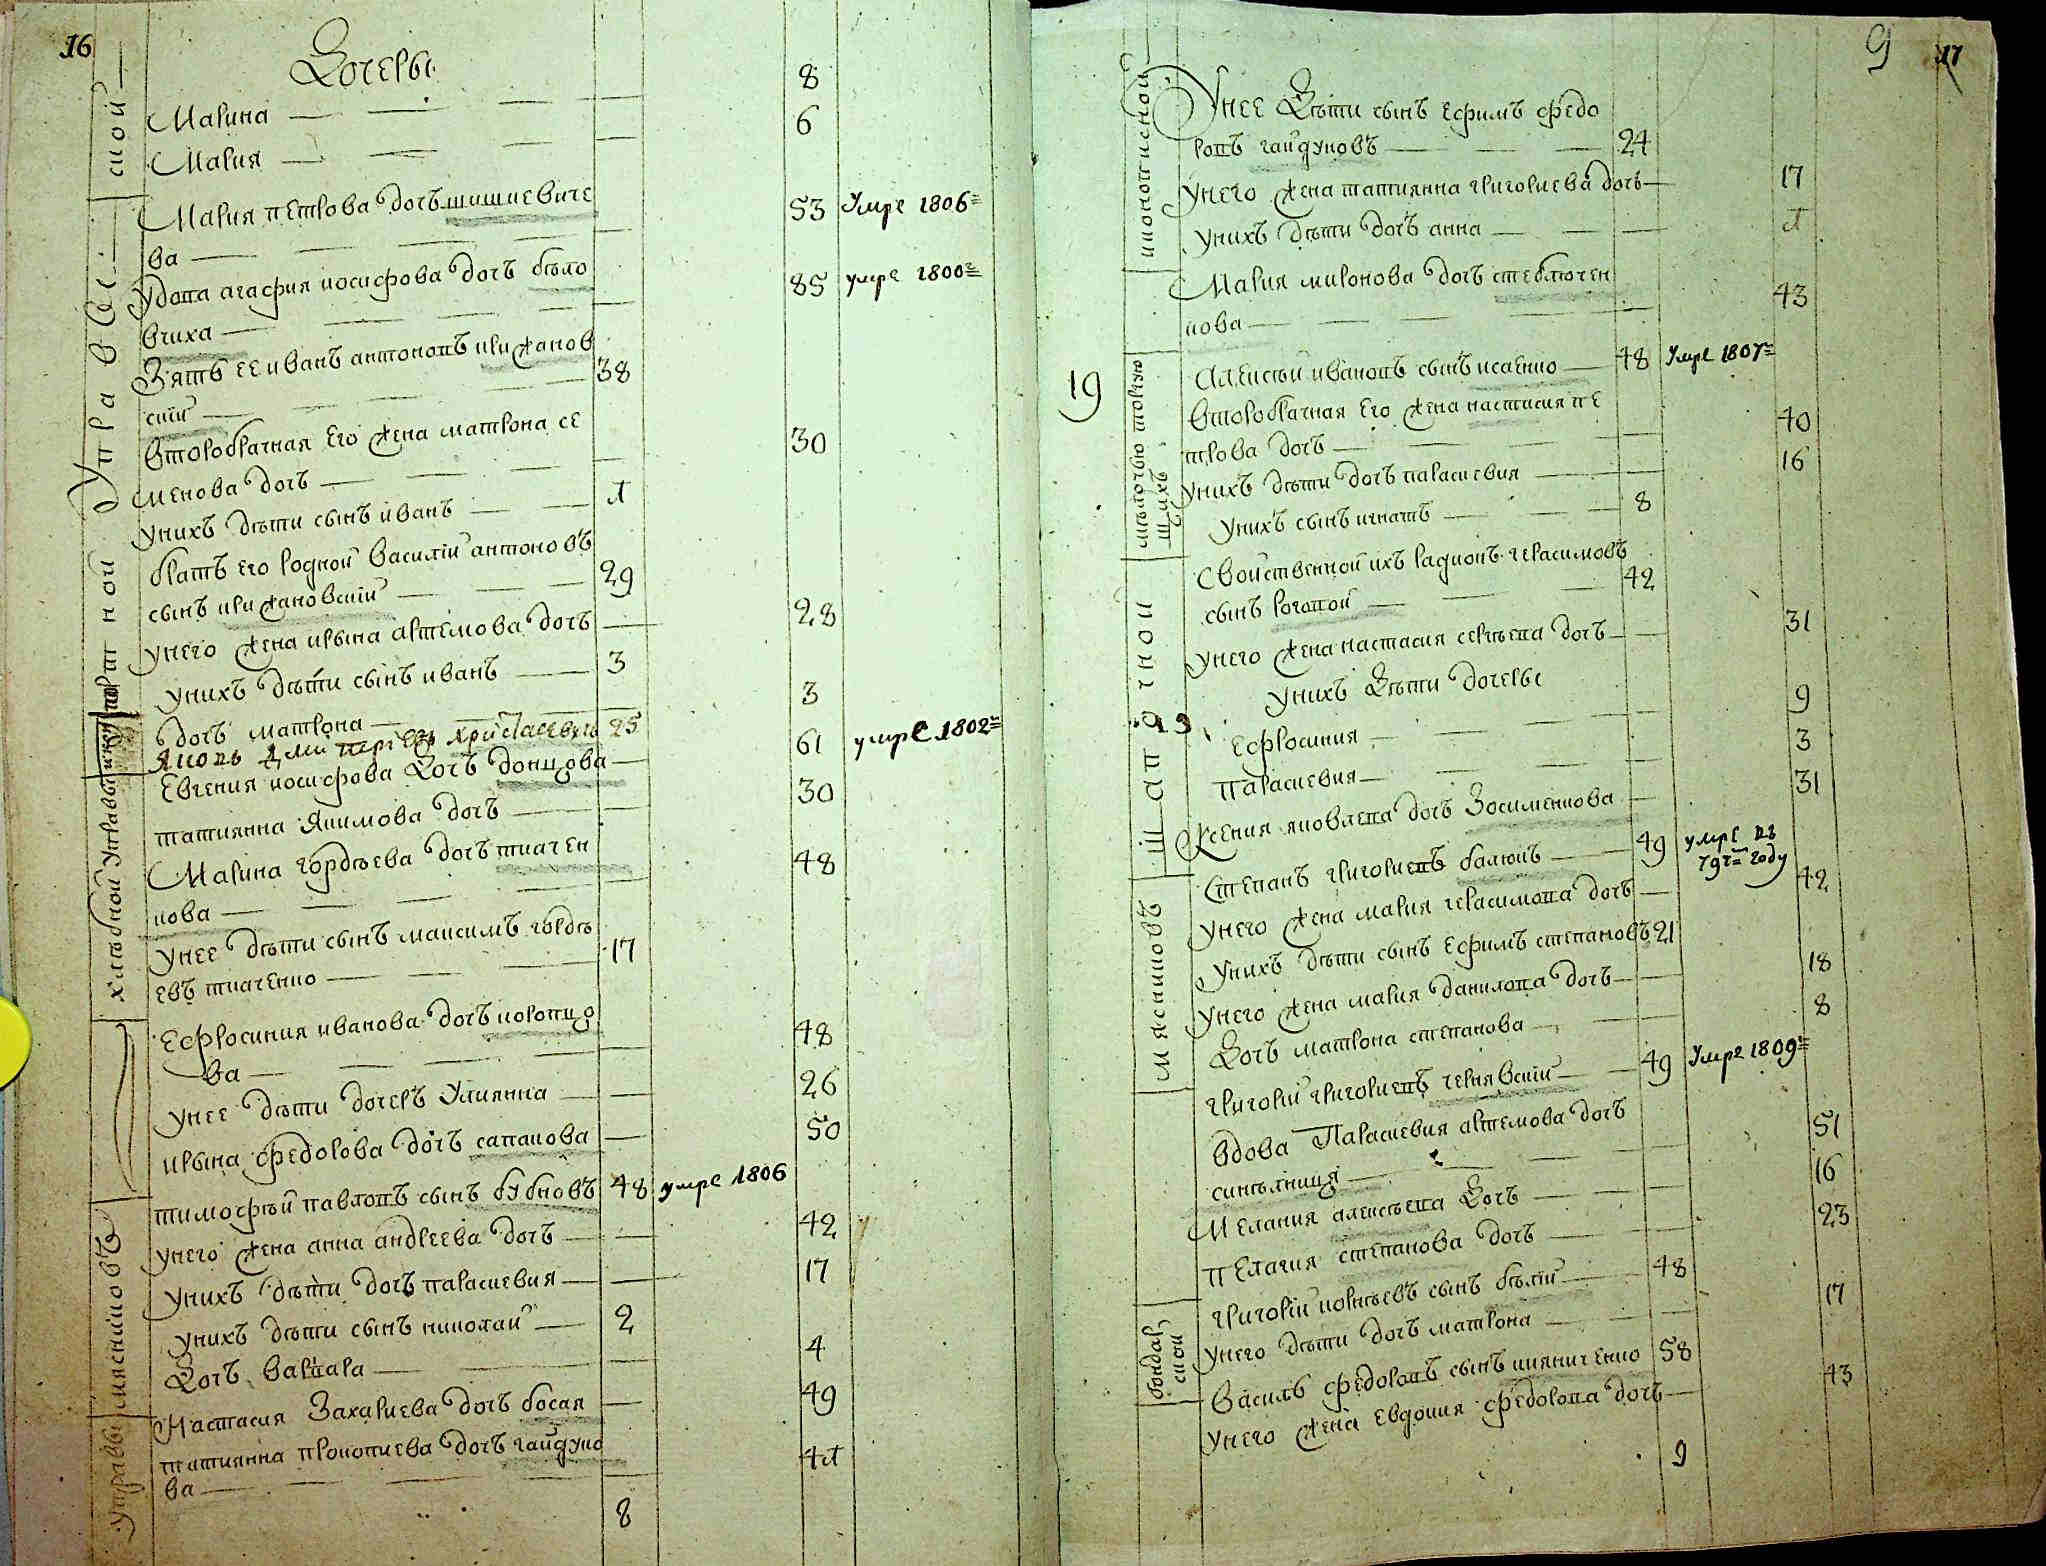 16
Дочеры
Марина — 8
Мария — 6
Мария петрова дочъ шишкевиче
ва — 53 Умре 1806
Удова агафия иосифова дочъ бѣло
вчиха — 85 умре 1800
Зятъ ее иванъ антоновъ крижанов
скій — 38
второбрачная его жена матрона се
менова дочъ — 30
унихъ дѣти сынъ иванъ — 1
братъ его родной василій антоновъ
сынъ крижановскій — 29
унего жена ирына артемова дочъ — 28
унихъ дѣти сынъ иванъ — 3
дочъ матрона — 3
Яковъ 25
Евгения иосифова дочъ донцова — 61 умре 1802
татиянна якимова дочъ — 30
Марина гордѣева дочъ ткачен
кова — 48
унее дѣти сынъ максимъ гордѣ
евъ ткаченко — 17
Ефросиния иванова дочъ коропцо
ва — 48
унее дѣти дочеръ Улиянна — 26
ирына федорова дочъ сапанова — 50
тимофѣй павловъ сынъ бубновъ 48 умре 1806
унего жена анна андреева дочъ — 42
унихъ дѣти дочъ параскевия — 17
унихъ дѣти сынъ николай — 2
Дочъ варвара — 4
Настасия Захариева дочъ босая — 49
татиянна прокопиева дочъ гайдуко
ва — 41
8
ской
Управы
хлѣбной Управы
мясниковъ
управы
9 17
Унее Дѣти сынъ ефимъ федо
ровъ гайдуковъ — 24
унего жена татиянна григориева дочъ — 17
унихъ дѣти дочъ анна — 1
Мария миронова дочъ стеблючен
кова — 43
19
Алексѣй ивановъ сынъ исаенко — 48 Умре 1807
второбрачная его жена настасия пе
трова дочъ — 40
унихъ дѣти дочъ параскевия — 16
унихъ сынъ игнатъ — 8
Свойственной ихъ радионъ герасимовъ
сынъ роговой — 42
унего жена настасия сергѣева дочъ — 31
унихъ Дѣти дочеры
Ефросиния — 9
Параскевия — 3
Ксения яковлева дочъ Зосименкова — 31
Степанъ григориевъ балюкъ — 49 умре въ
79г= году
унего жена мария герасимова дочъ — 42
унихъ дѣти сынъ ефимъ степановъ 21
унего жена мария данилова дочъ — 18
Дочъ матрона степанова — 8
григорій григориевъ чернявскій — 49 Умре 1809
вдова Параскевия артемова дочъ
51
Мелания алексѣева Дочъ — 16
пелагия степанова дочъ — 23
григорій корнѣевъ сынъ бѣлій — 48
унего дѣти дочъ матрона — 17
Василъ федоровъ сынъ княниченко 58
унего жена евдокия федорова дочъ — 43
9
иконописной
мѣлочью торгую
щихъ
шапочной
мясниковъ
бондар
ской